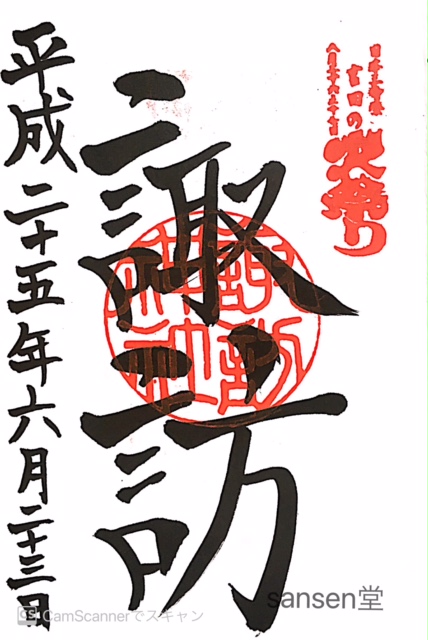 日本三奇祭
吉田の
火祭り
八月二十六・二十七日
諏訪
諏訪神社
平成二十五年六月二十三日
CS CamScannerでスキャン
sansen堂